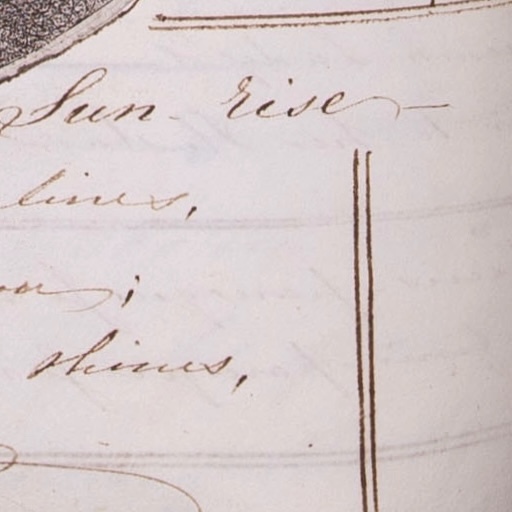 Sun-rise-
lines,
shines,